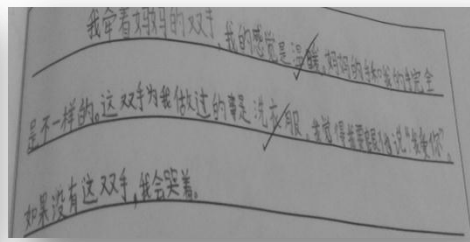 我牵着妈妈的双手,我的感觉是温暖,妈妈的手和爸的手完全
是不一样的。这双手为我做过的事是洗衣服,我觉得我要跟他说“我爱你”,
如果没有这双手,我会哭着。